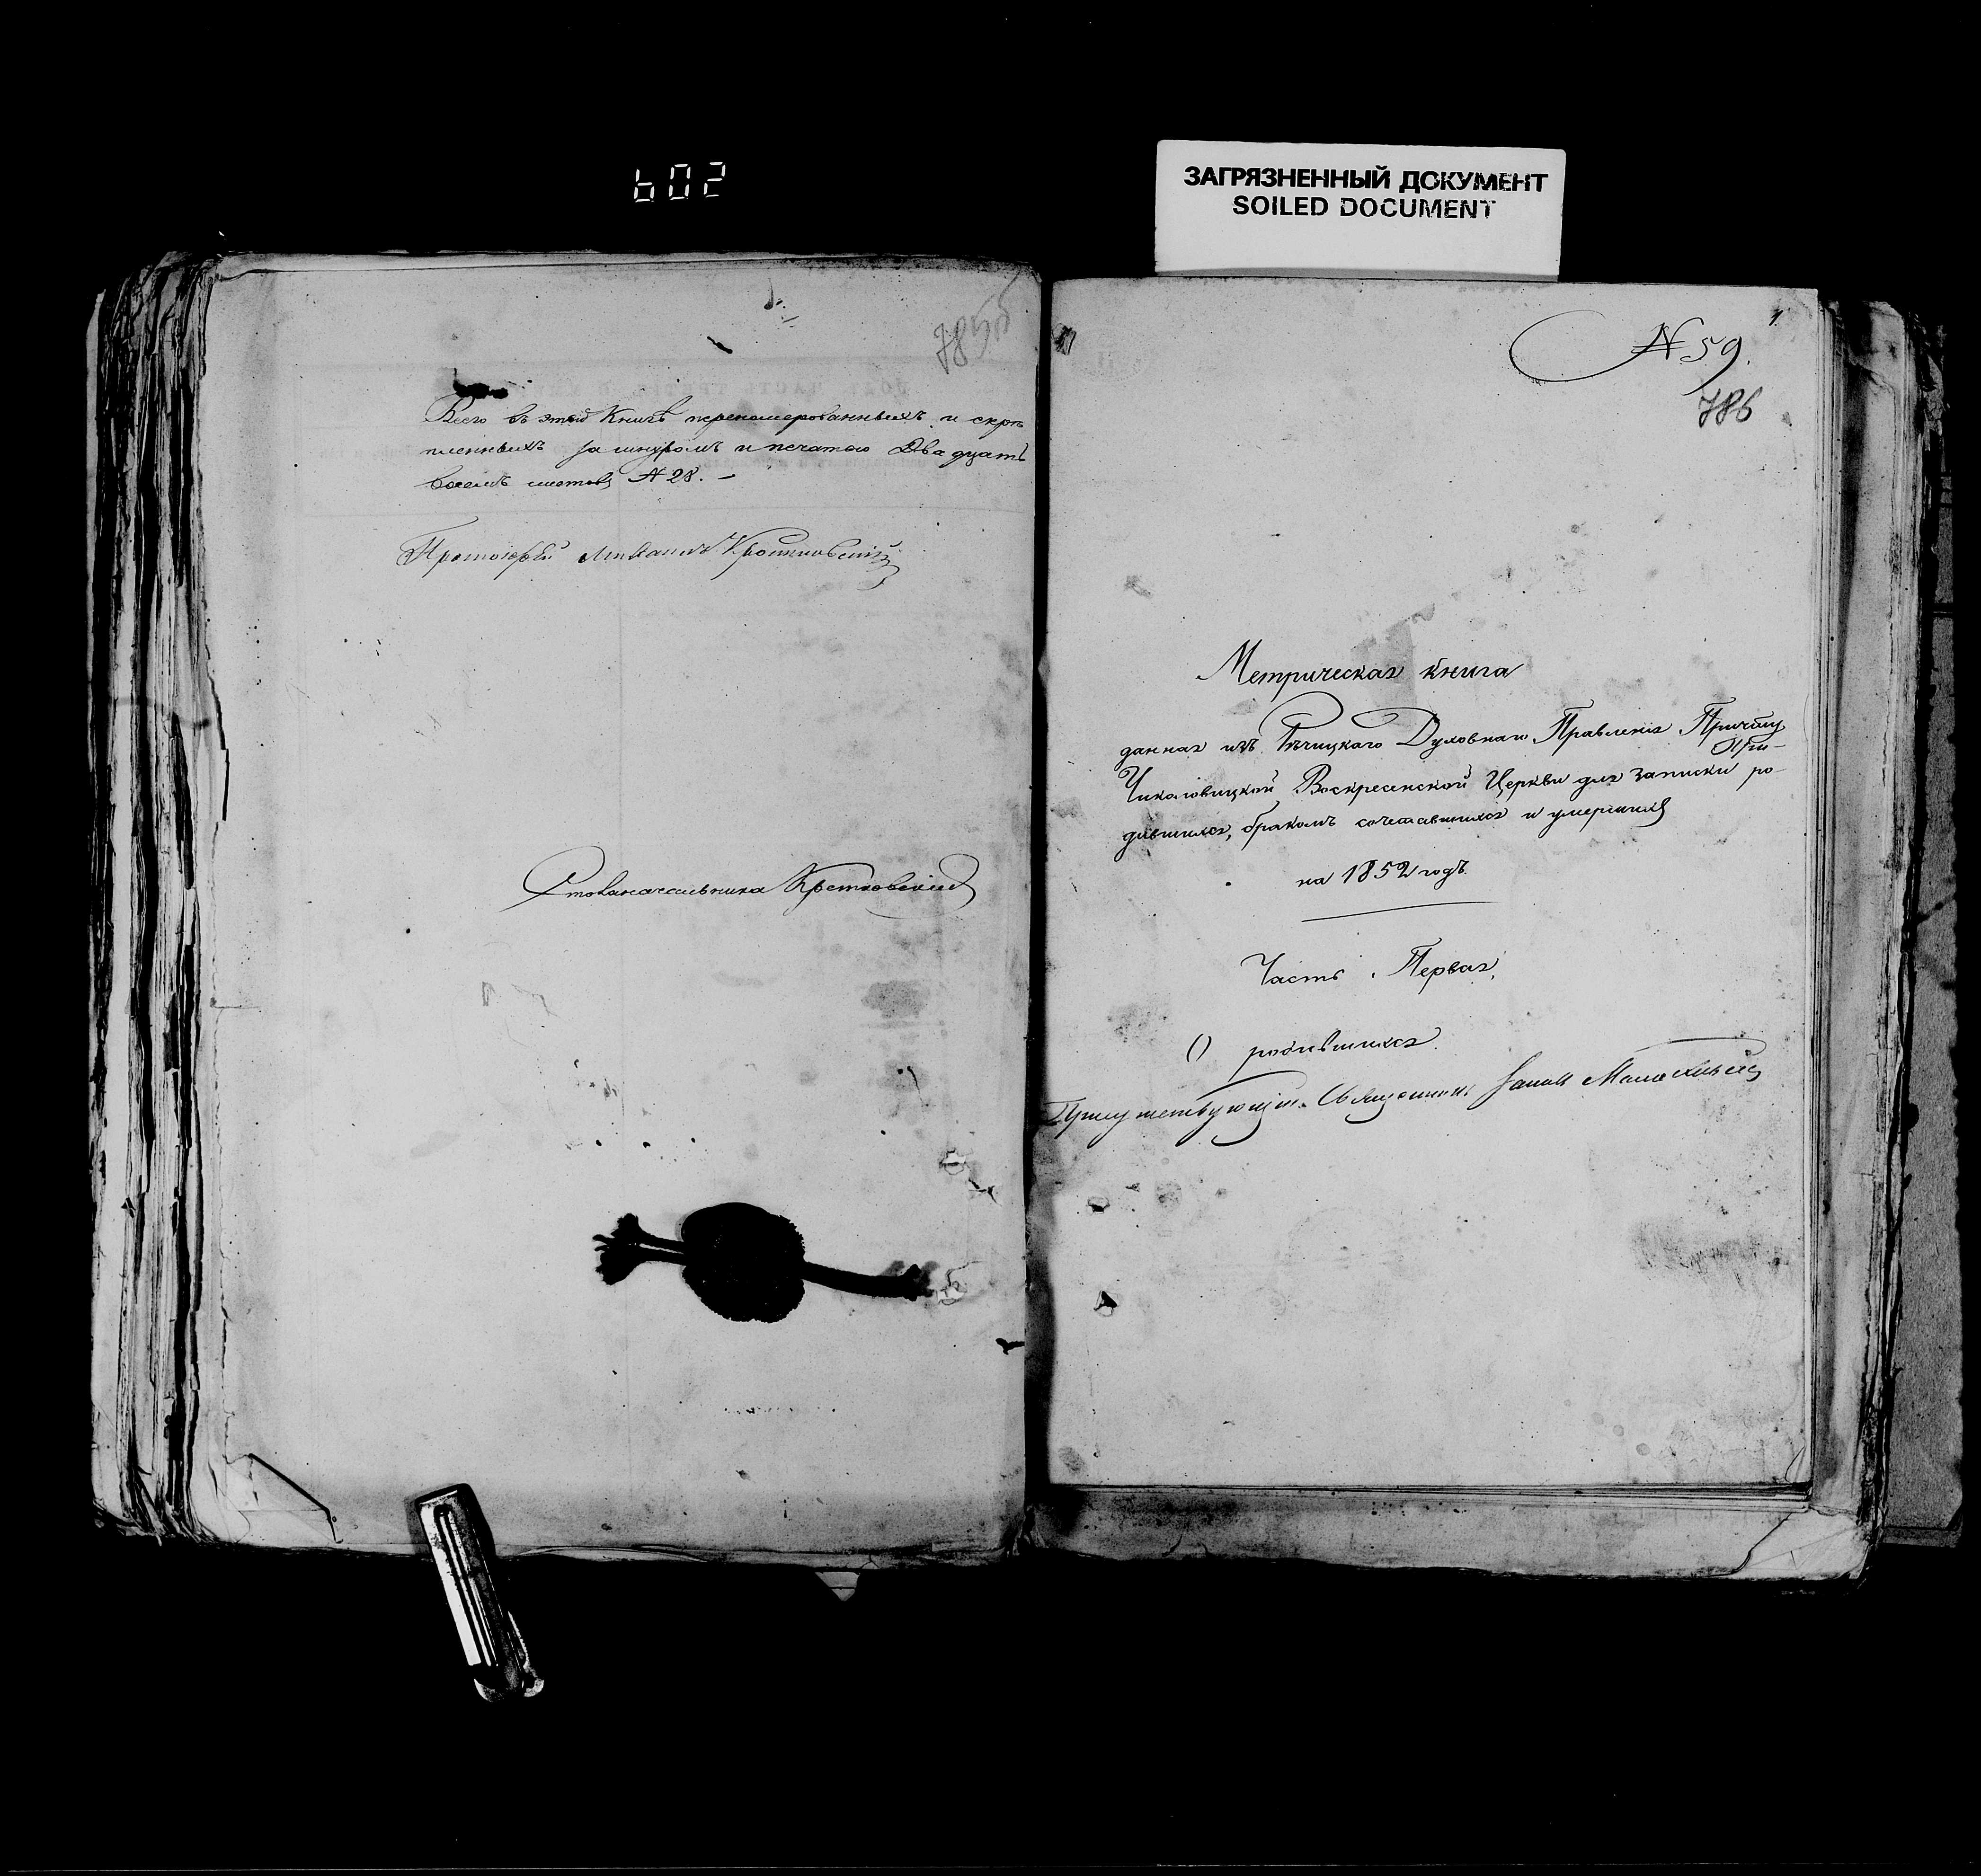 602
ЗАГРЯЗНЕННЫЙ ДОКУМЕНТ
SOILED DOCUMENT
785об
Всего въ этой Книгѣ переномерованныхъ и скрѣ
пленныхъ за шнуромъ и печатью Двадцать
восемь листовъ № 28. —
Протоіерей
Столоначальника
1
№ 59.
786
Метрическая книга
данная изъ Рѣчицкаго Духовнаго Правленія Причту
при
Чикаловицкой Воскресенской Церкви для записки ро-
дившихся, бракомъ сочетавшихся и умершихъ
на 1852 годъ.
Часть Первая,
О родившихся.
Присутствующій Священникъ